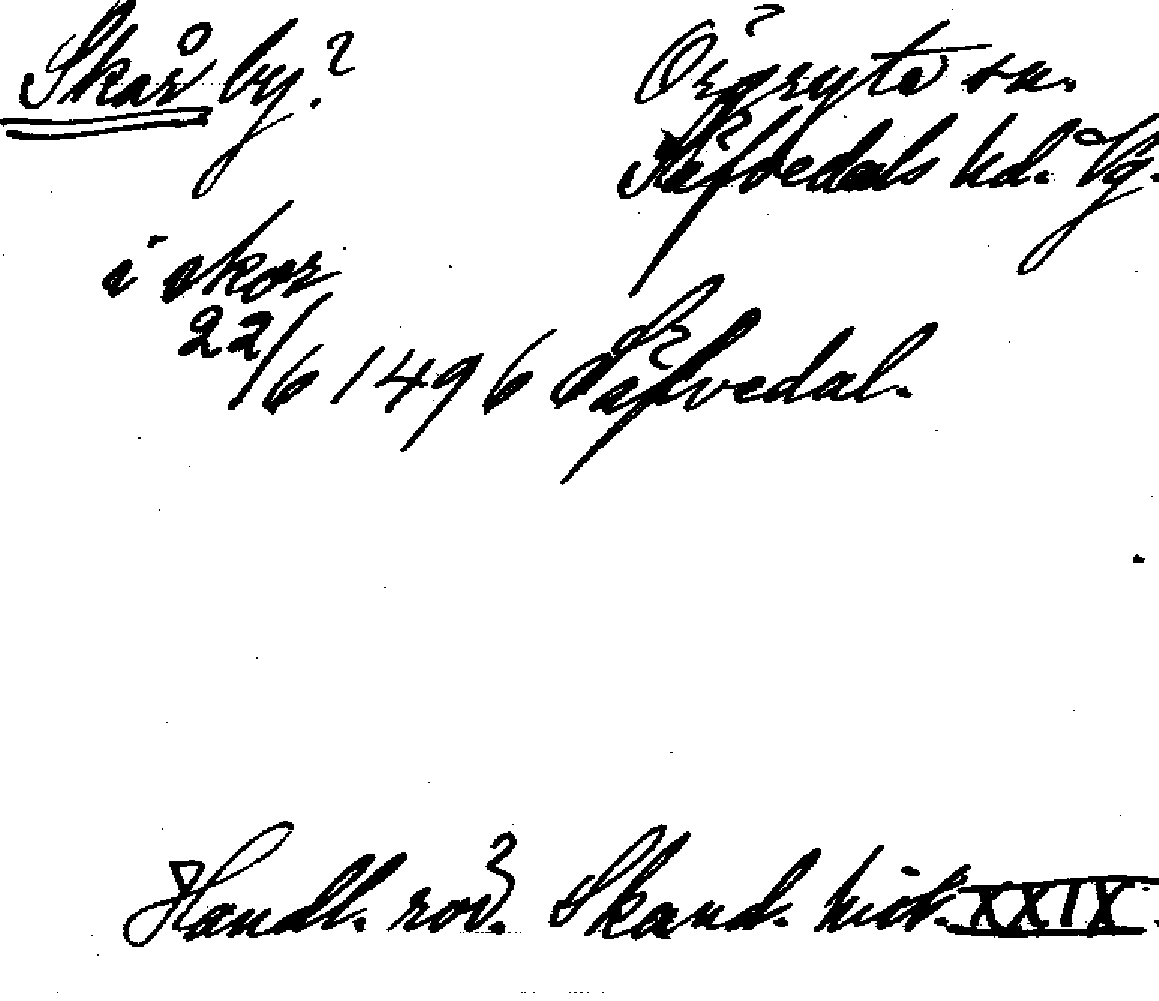 Skår by.? Örgryte sn.
Säfvedals hd. Vg.
i skor
22/6 1496 Säfvedal.
Handl. rör. Skand. hist. XXIX.